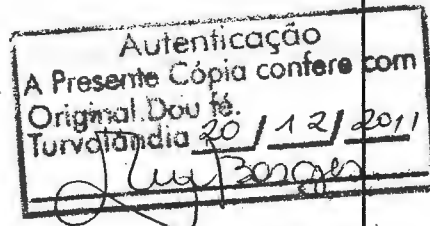 Autenticação
A Presente Cópia confere com
Original. Dou fé.
Turvolândia 20 / 12 / 2011
Borges